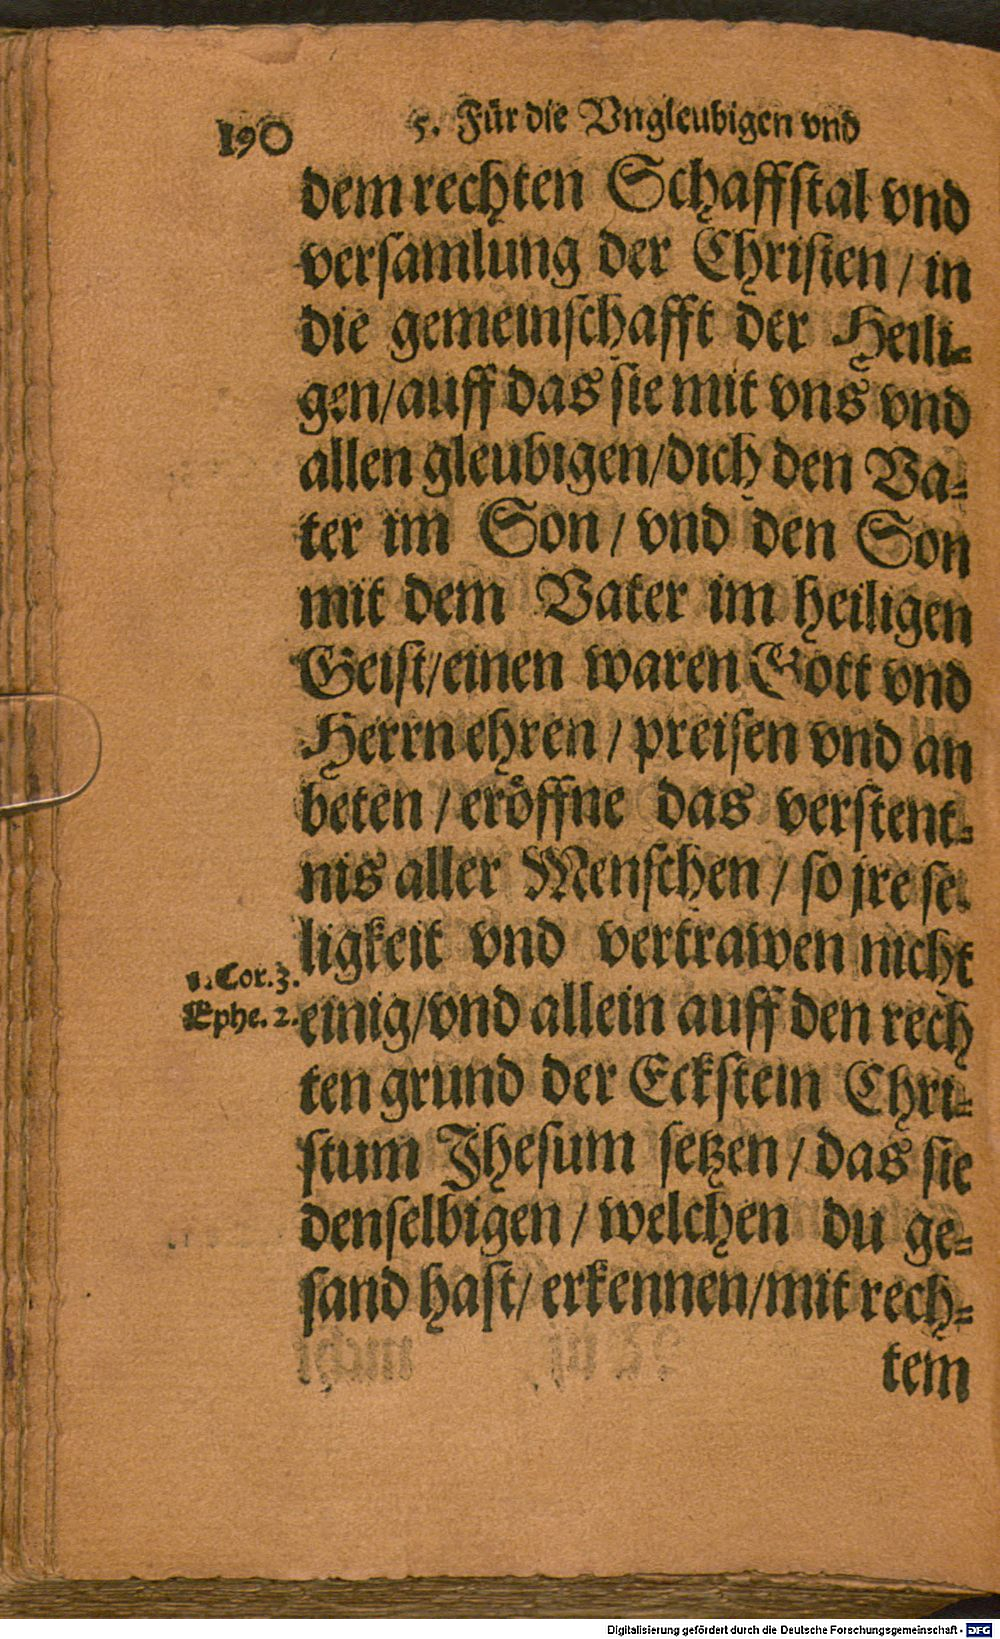 190
5. Für die Vngleubigen vnd
dem rechten Schaffstal vnd
versamlung der Christen / in
die gemeinschafft der Heili-
gen/auff das sie mit vns vnd
allen gleubigen/dich den Va-
ter im Son / vnd den Son
mit dem Vater im heiligen
Geist/einen waren Gott vnd
Herrn ehren / preisen vnd an
beten / eröffne das verstent-
nis aller Menschen / so jre se-
ligkeit vnd vertrawen nicht
1. Cor. 3.
Ephe. 2.
einig/vnd allein auff den rech
ten grund der Eckstein Chri-
stum Jhesum setzen / das sie
denselbigen / welchen du ge-
sand hast/ erkennen/mit rech-
tem
Digitalisierung gefördert durch die Deutsche Forschungsgemeinschaft - DFG